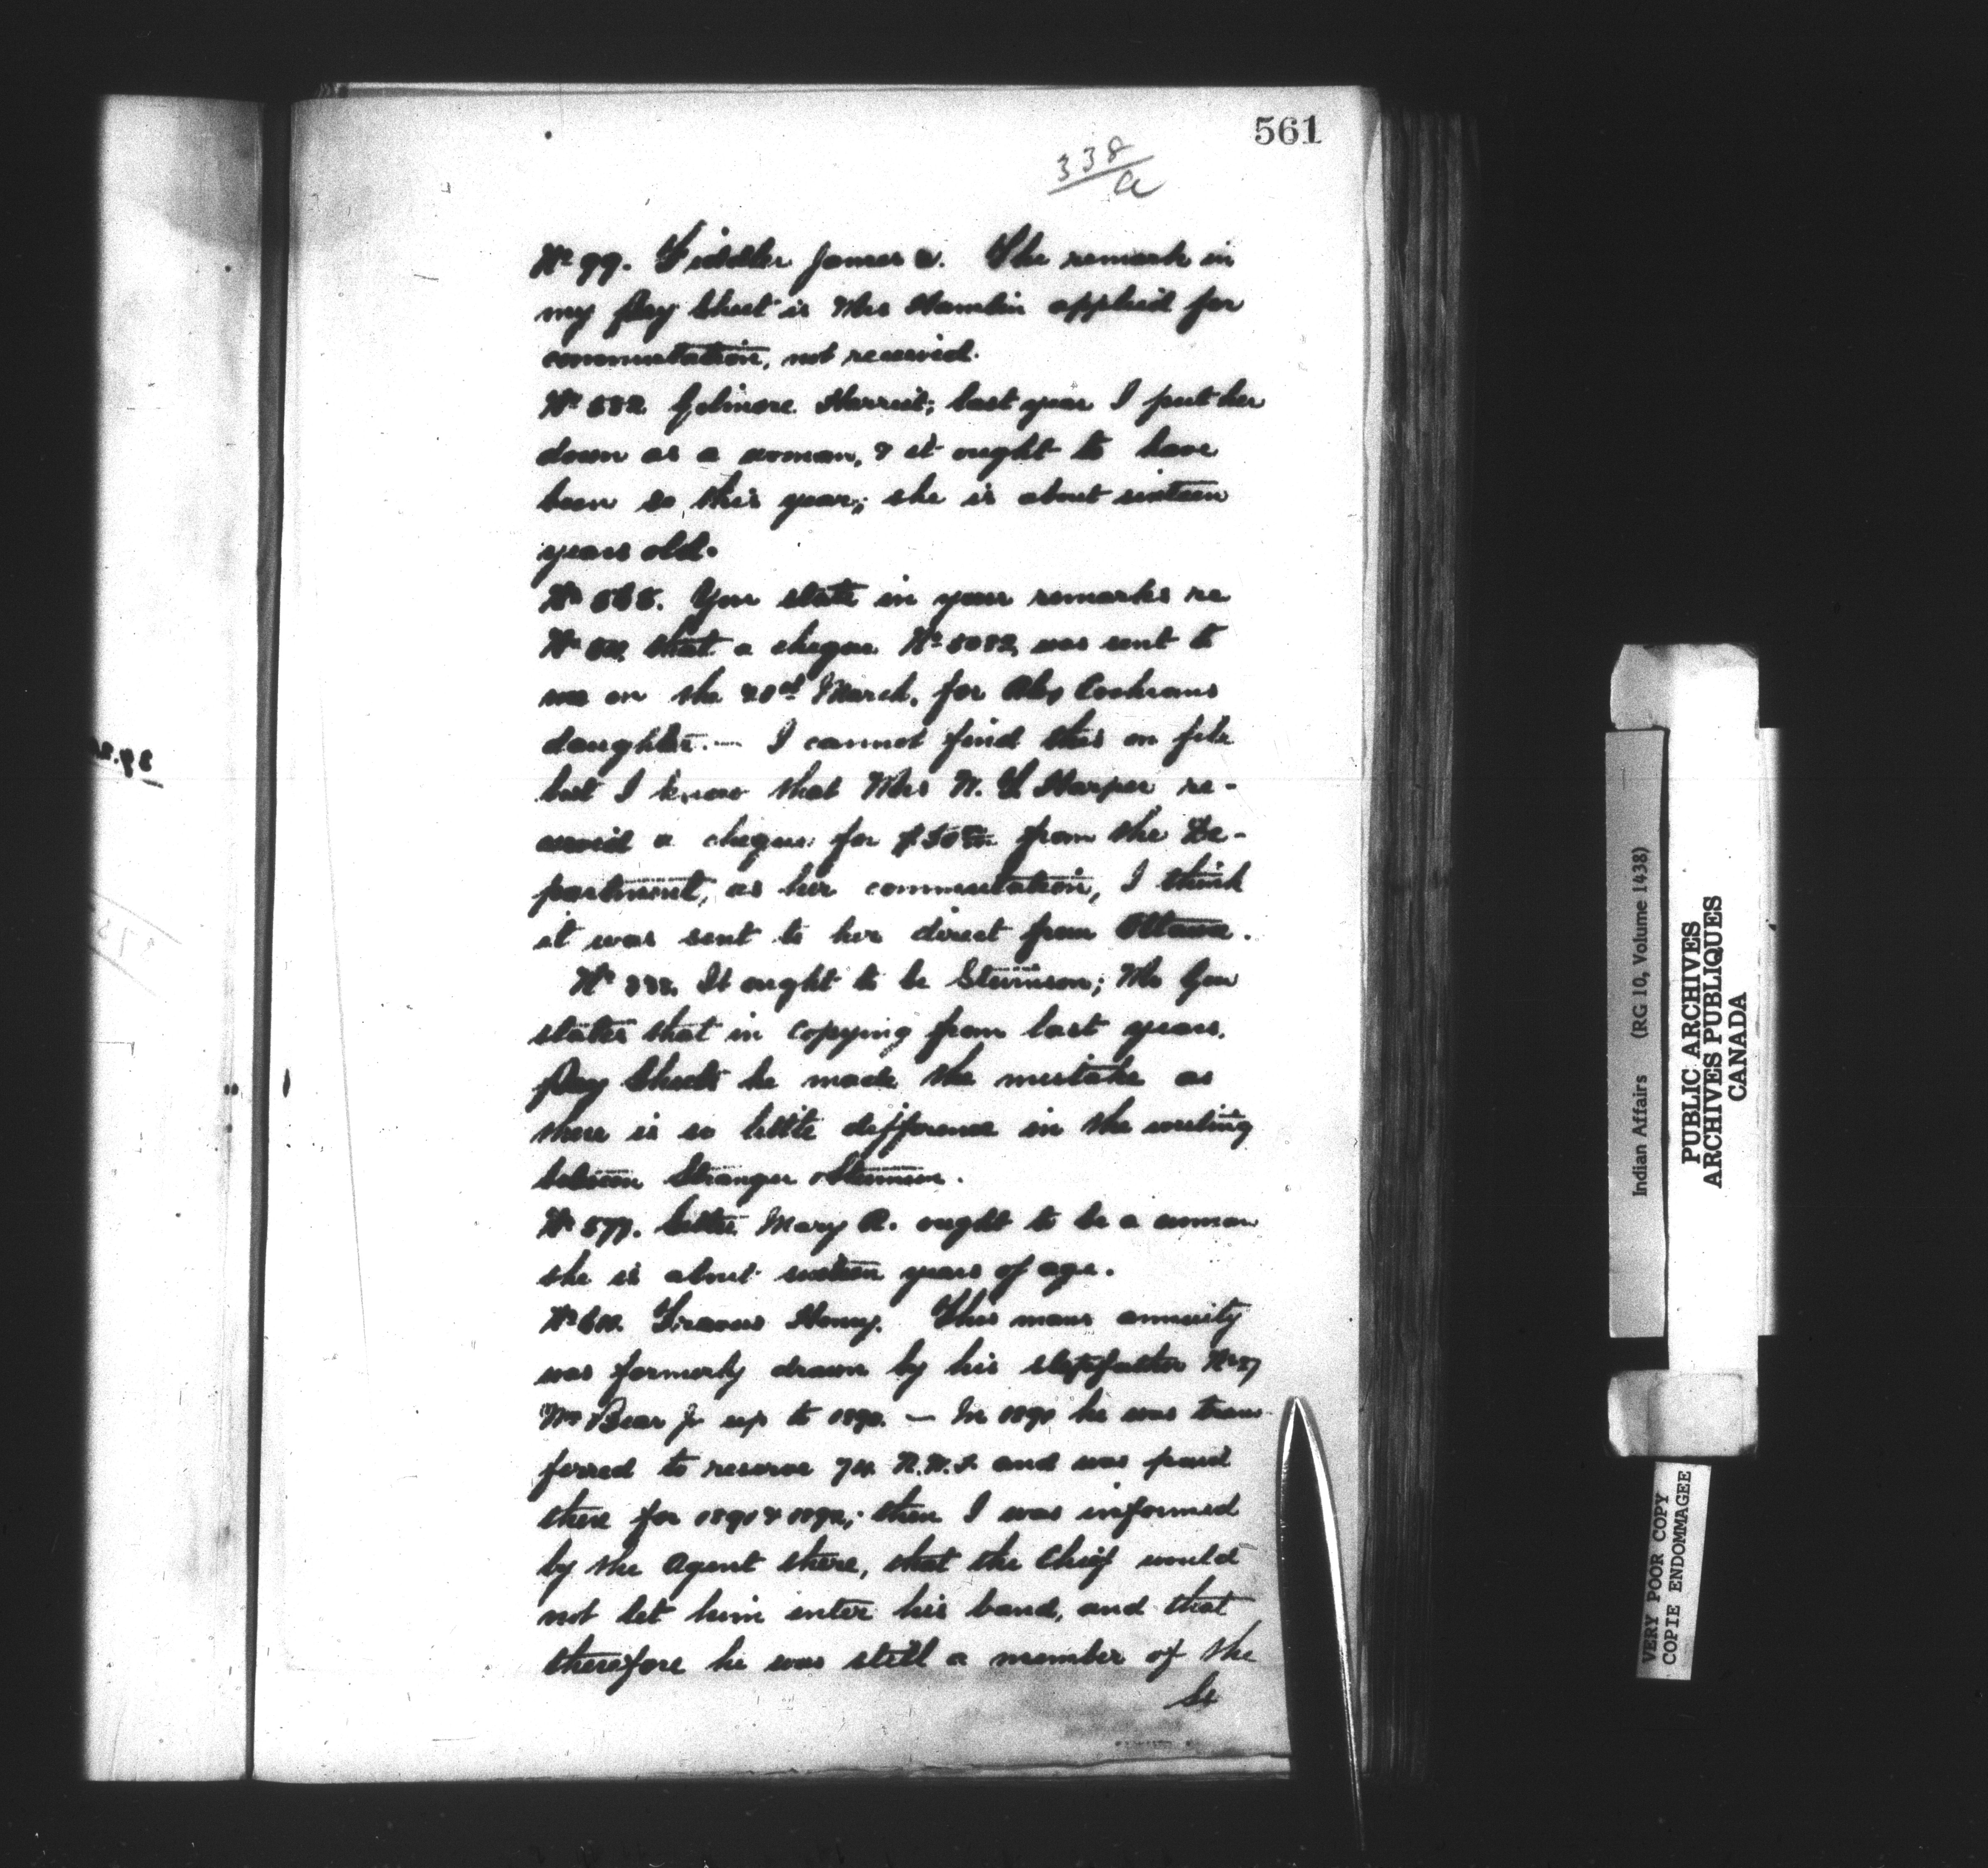 561
338/a
No 99. Fiddler James A. The remark in
my Pay Sheet is Mrs Hamlin applied for
commutation, not received.
No 532 Gilmore Harriet; last year I put her
down as a woman, & it ought to have
been so this year; she is about sixteen
years old.
No 565. You state in your remarks re
that a cheque No 5082 was sent to
me on the March, for Alex Cochrans
daughter. — I cannot find this on file
but I know that Mrs W. Harper re-
ceived a cheque for $50 from the De-
partment, as her commutation, I think
it was sent to her direct from Ottawa.
No It ought to be Stevenson; Mr
states that in copying from last years
Pay Sheets he made the mistake as
there is so little difference in the writing
between Stranger & Stevenson.
No 577. Settee Mary A. ought to be a woman
she is about sixteen years of age.
No Travers Henry. This mans annuity
was formerly drawn by his stepfather No 27
Wm Bear Jr up to 1890. — In 1891 he was trans-
ferred to reserve 74 N.W.T. and was paid
there for 1891 & 1892; then I was informed
by the Agent there, that the Chief would
not let him enter his band, and that
therefore he was still a member of the
St
Indian Affairs (RG 10, Volume 1438)
PUBLIC ARCHIVES
ARCHIVES PUBLIQUES
CANADA
VERY POOR COPY
COPIE ENDOMMAGEE